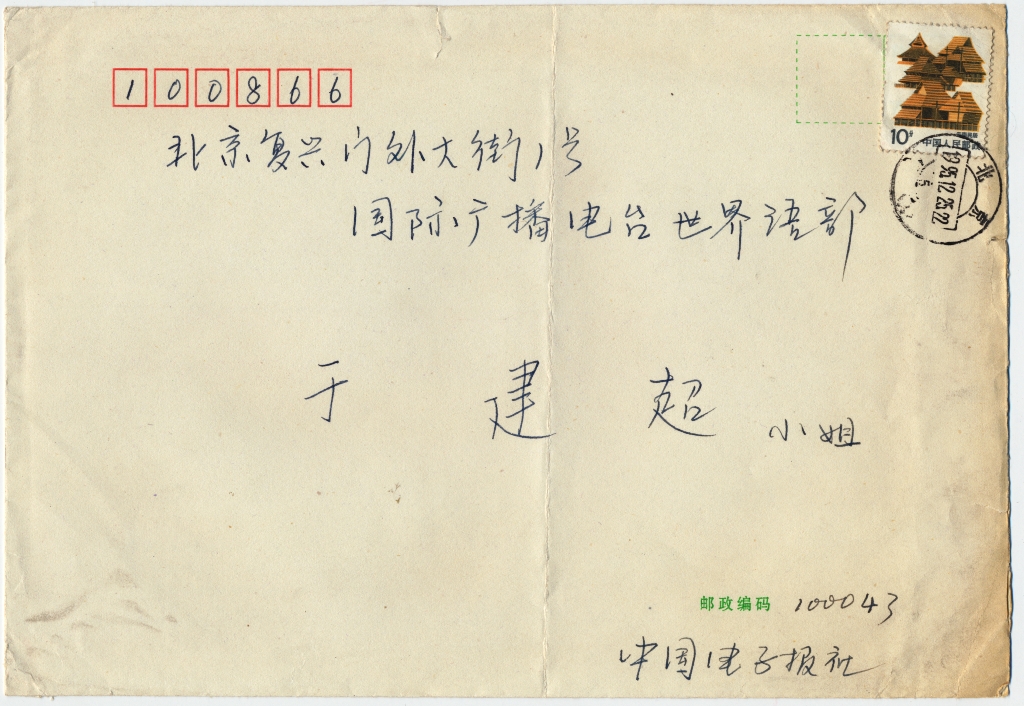 100866
10分
中国人民邮政
北京复兴门外大街1号
北京
1995.12.25.22
国际广播电台世界语部
于建超 小姐
邮政编码 100043
中国电子报社